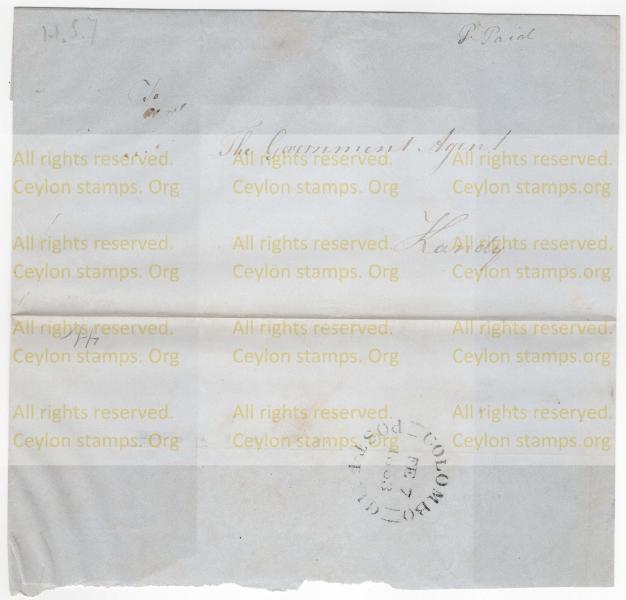 P. Paid
To
The Government Agent
Kandy
All rights reserved. All rights reserved. All rights reserved.
Ceylon stamps. Org Ceylon stamps. Org Ceylon stamps. Org
All rights reserved. All rights reserved. All rights reserved.
Ceylon stamps. Org Ceylon stamps. Org Ceylon stamps. Org
All rights reserved. All rights reserved. All rights reserved.
Ceylon stamps. Org Ceylon stamps. Org Ceylon stamps. Org
All rights reserved. All rights reserved. All rights reserved.
Ceylon stamps. Org Ceylon stamps. Org Ceylon stamps. Org
COLOMBO
POST PAID
FE 7